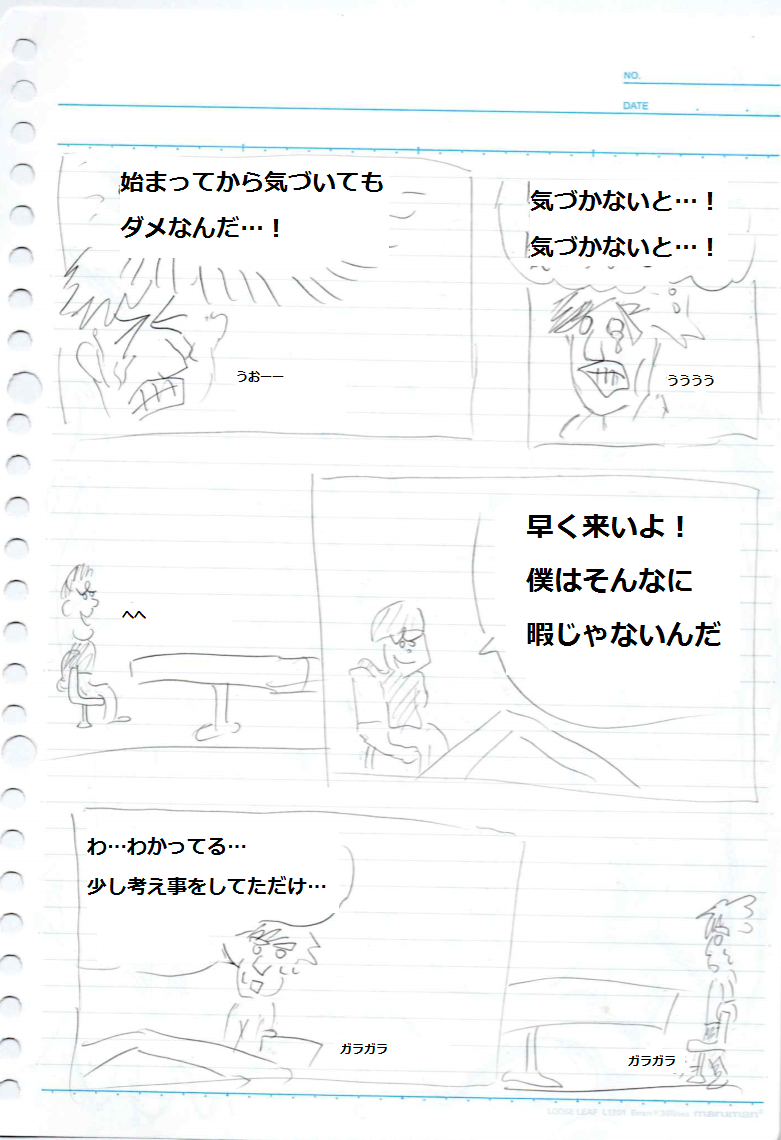 NO.
DATE
気づかないと…！
気づかないと…！
うううう
始まってから気づいても
ダメなんだ…！
うおーー
早く来いよ！
僕はそんなに
暇じゃないんだ
へへ
わ…わかってる…
少し考え事をしてただけ…
ガラガラ
ガラガラ
LOOSE LEAF
maruman